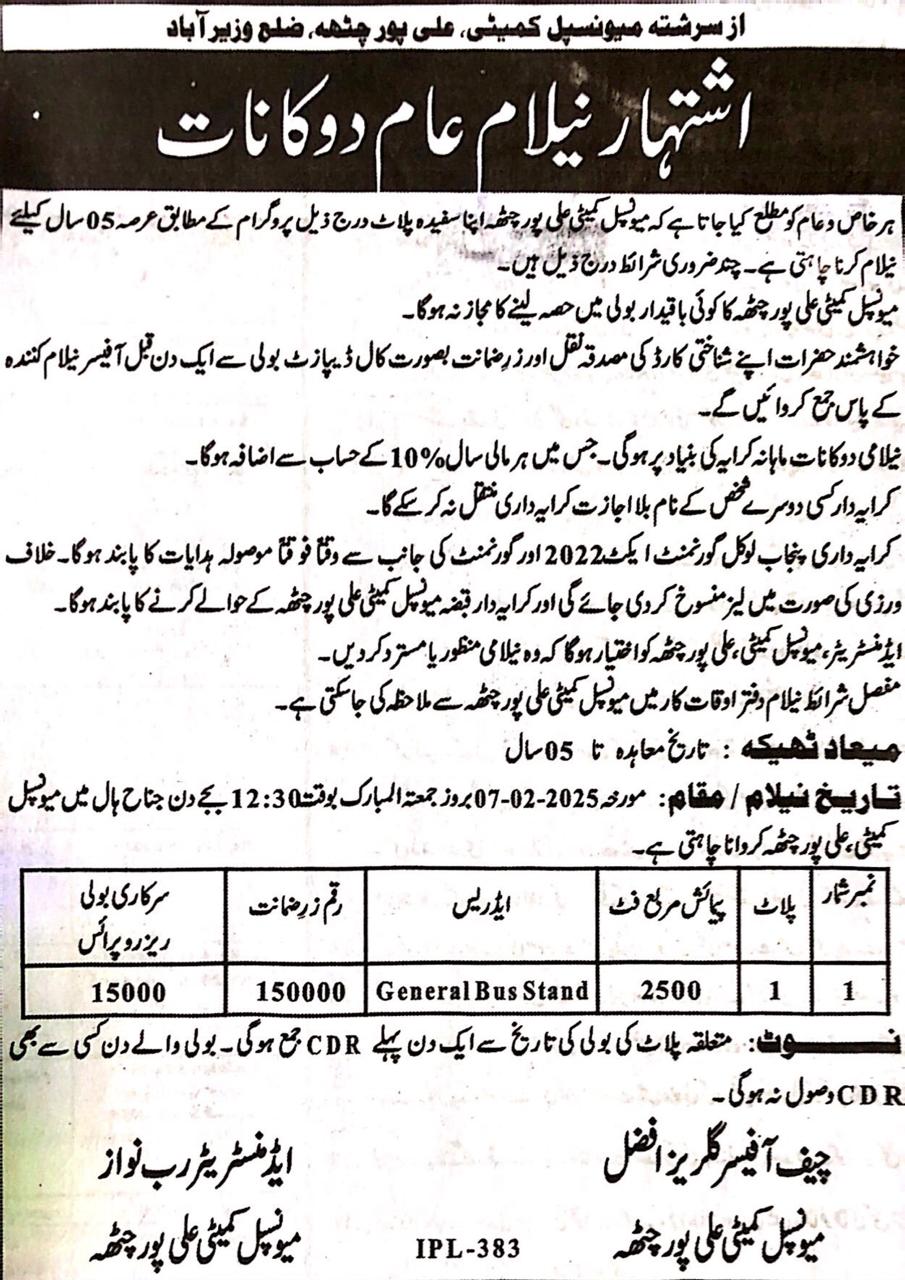 از سرشتہ میونسپل کمیٹی، علی پور چٹھہ، ضلع وزیر آباد
اشتہار نیلام عام دوکانات
ہر خاص و عام کو مطلع کیا جاتا ہے کہ میونسپل کمیٹی علی پور چٹھہ اپنا سفیدہ پلاٹ درج ذیل پروگرام کے مطابق عرصہ 05 سال کیلئے
نیلام کرنا چاہتی ہے۔ چند ضروری شرائط درج ذیل ہیں۔
میونسپل کمیٹی علی پور چٹھہ کا کوئی باقیدار بولی میں حصہ لینے کا مجاز نہ ہوگا۔
خواہشمند حضرات اپنے شناختی کارڈ کی مصدقہ نقل اور زرِ ضمانت بصورت کال ڈیپازٹ بولی سے ایک دن قبل آفیسر نیلام کنندہ
کے پاس جمع کروائیں گے۔
نیلامی دوکانات ماہانہ کرایہ کی بنیاد پر ہوگی۔ جس میں ہر مالی سال 10% کے حساب سے اضافہ ہوگا۔
کرایہ دار کسی دوسرے شخص کے نام بلا اجازت کرایہ داری منتقل نہ کر سکے گا۔
کرایہ داری پنجاب لوکل گورنمنٹ ایکٹ 2022 اور گورنمنٹ کی جانب سے وقتاً فوقتاً موصولہ ہدایات کا پابند ہوگا۔ خلاف
ورزی کی صورت میں لیز منسوخ کر دی جائے گی اور کرایہ دار قبضہ میونسپل کمیٹی علی پور چٹھہ کے حوالے کرنے کا پابند ہوگا۔
ایڈمنسٹریٹر، میونسپل کمیٹی، علی پور چٹھہ کو اختیار ہوگا کہ وہ نیلامی منظور یا مسترد کر دیں۔
مفصل شرائط نیلام دفتر اوقات کار میں میونسپل کمیٹی علی پور چٹھہ سے ملاحظہ کی جاسکتی ہے۔
میعاد ٹھیکہ : تاریخ معاہدہ تا 05 سال
تاریخ نیلام / مقام: مورخہ 07-02-2025 بروز جمعتہ المبارک بوقت 12:30 بجے دن جناح ہال میں میونسپل
کمیٹی، علی پور چٹھہ کروانا چاہتی ہے۔
نمبر شمار پلاٹ پیمائش مربع فٹ ایڈریس رقم زرِ ضمانت سرکاری بولی ریزرو پرائس
1 1 2500 General Bus Stand 150000 15000
نوٹ: متعلقہ پلاٹ کی بولی کی تاریخ سے ایک دن پہلے CDR جمع ہوگی۔ بولی والے دن کسی سے بھی
CDR وصول نہ ہوگی۔
چیف آفیسر گلریز افضل ایڈمنسٹریٹر رب نواز
میونسپل کمیٹی علی پور چٹھہ IPL-383 میونسپل کمیٹی علی پور چٹھہ